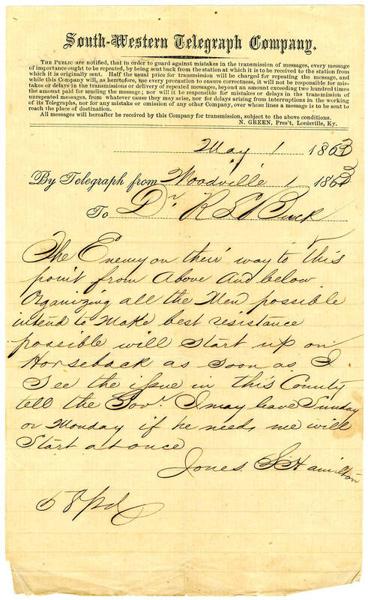 South-Western Telegraph Company.
THE PUBLIC are notified, that in order to guard against mistakes in the transmission of messages, every message
of importance ought to be repeated, by being sent back from the station at which it is to be received to the station from
which it is originally sent. Half the usual price for transmission will be charged for repeating the message, and
while this Company will, as heretofore, use every precaution to ensure correctness, it will not be responsible for mis-
takes or delays in the transmission or delivery of repeated messages, beyond an amount exceeding two hundred times
the amount paid for sending the message; nor will it be responsible for mistakes or delays in the transmission of
unrepeated messages, from whatever cause they may arise, nor for delays arising from interruptions in the working
of its Telegraphs, nor for any mistake or omission of any other Company, over whose lines a message is to be sent to
reach the place of destination.
All messages will hereafter be received by this Company for transmission, subject to the above conditions.
N. GREEN, Pres't, Louisville, Ky.
May 1 1863
By Telegraph from Woodville 1 1863
To Dr R L Buck
The Enemy on their way to this
point from Above And below
Organizing all the Men possible
intend to Make best resistance
possible will Start up on
Horseback as soon as I
See the issue in this County
tell the Gov. I may leave Sunday
or Monday if he needs me will
Start at once
Jones S Hamilton
58 pd